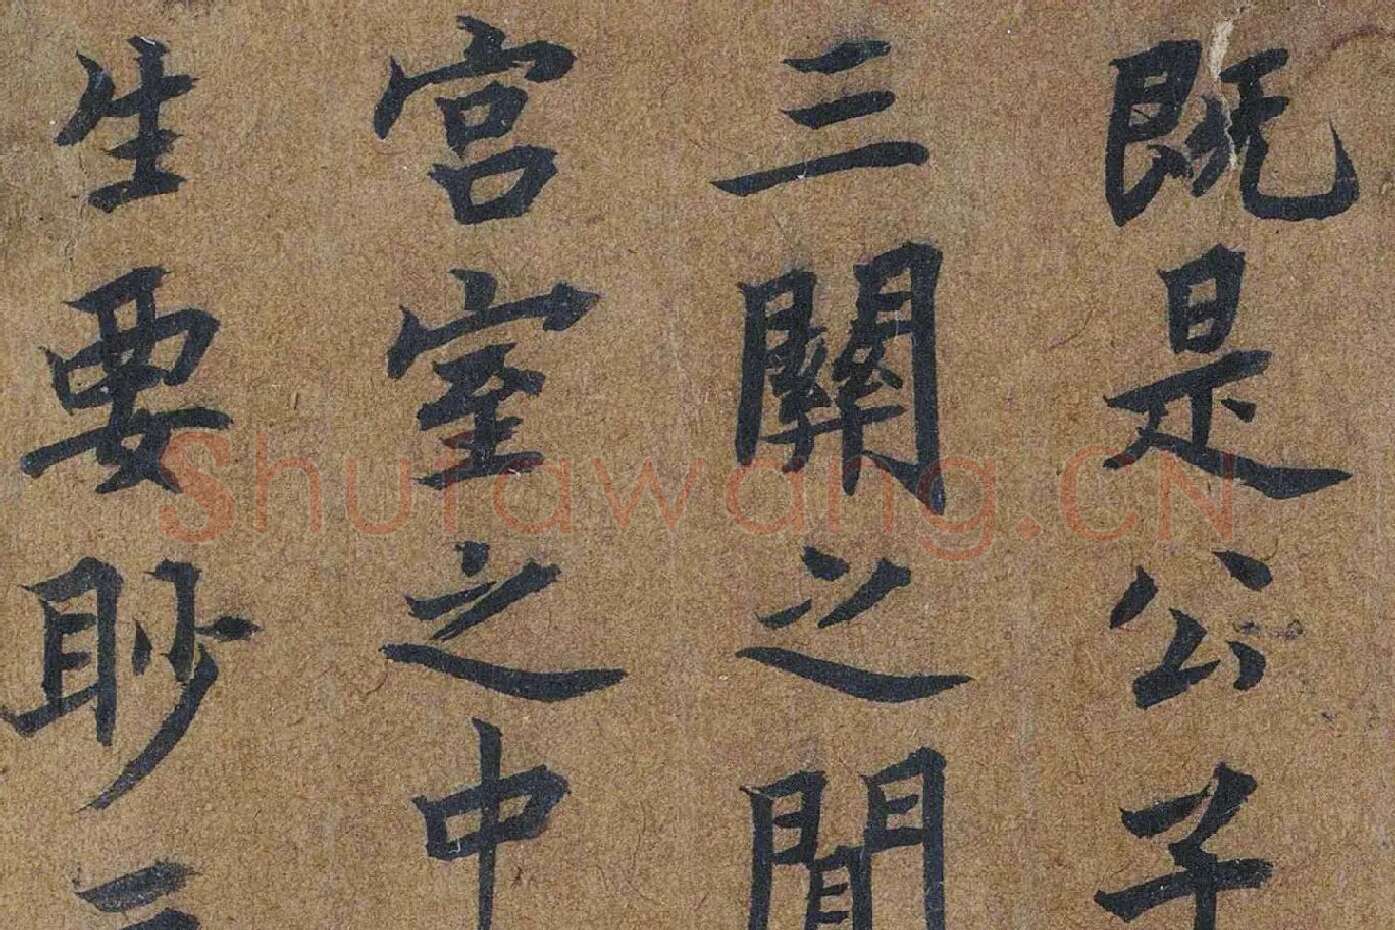 既是公子
三關之間
宮室之中
生要眇
Shufawang.CN